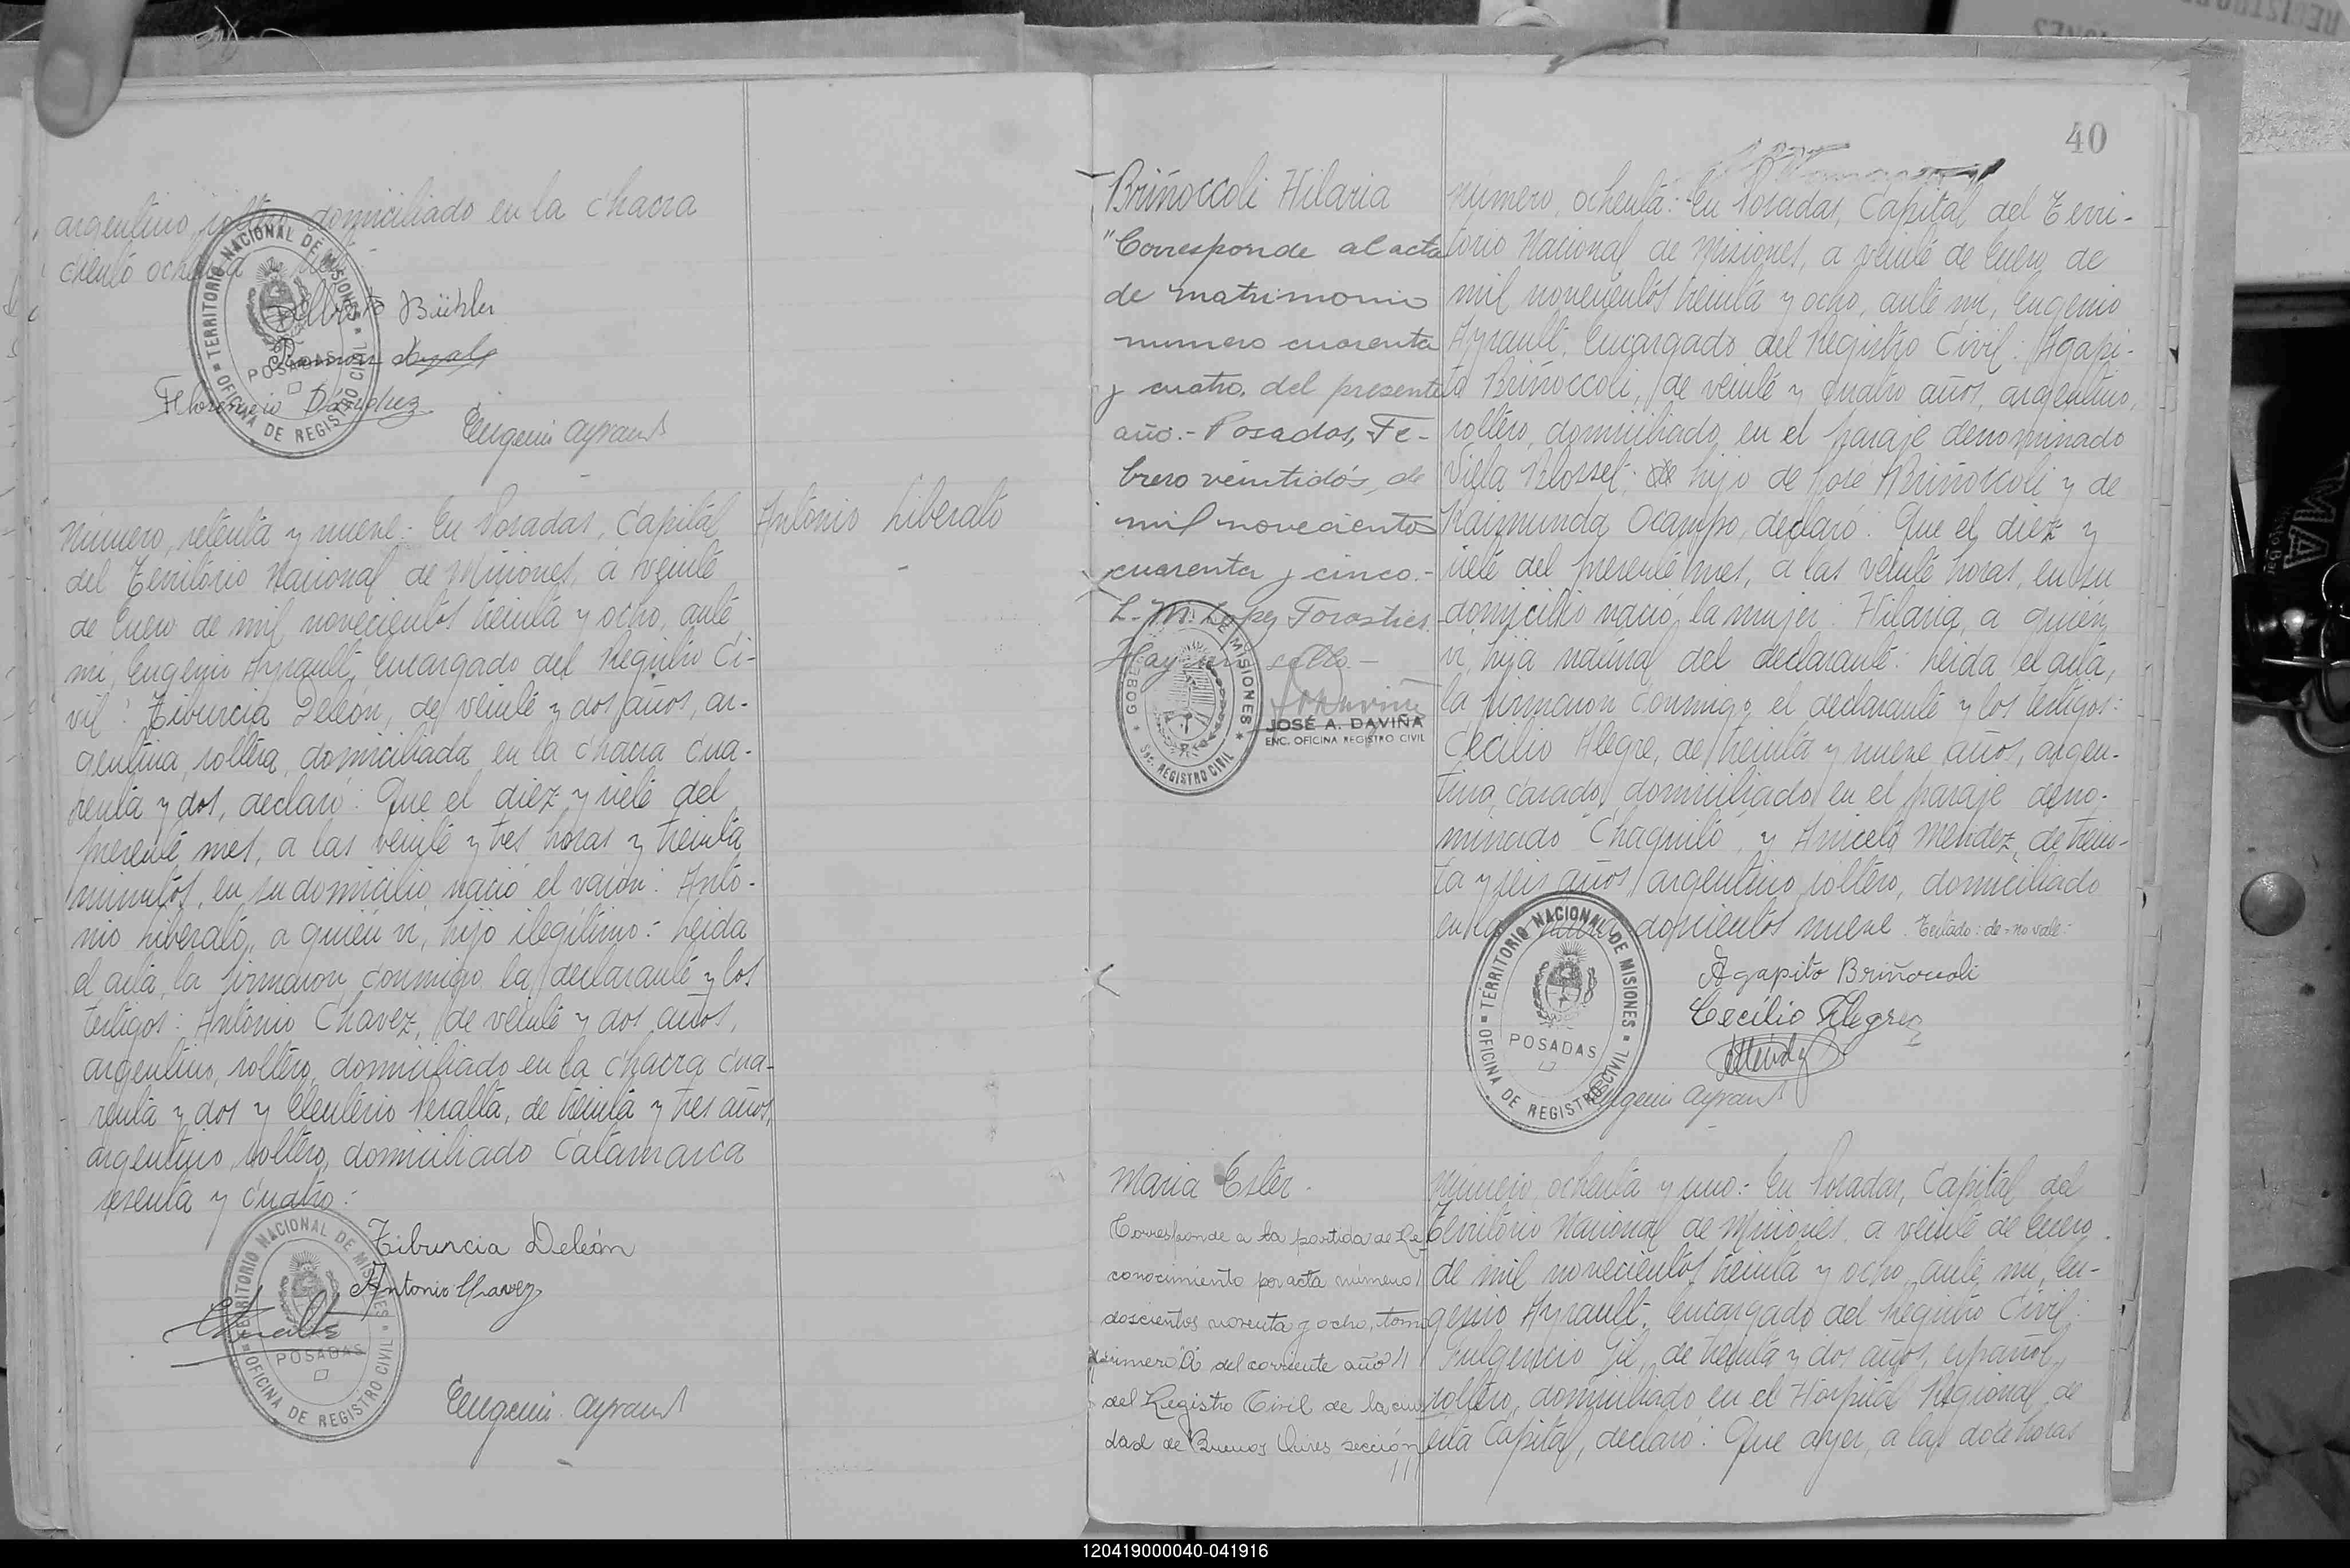 argentino, soltero, domiciliado en la chacra
ciento ochenta y
TERRITORIO NACIONAL DE MISIONES
POSADAS
OFICINA DE REGISTRO CIVIL
Alberto Bühler
Florencio Sánchez
Eugenio Ayrault
Número, setenta y nueve: En Posadas, Capital
del Territorio Nacional de Misiones, a veinte
de Enero de mil novecientos treinta y ocho, ante
mi, Eugenio Ayrault, Encargado del Registro Ci-
vil: Tiburcia Deleón, de veinte y dos años, ar-
gentina, soltera, domiciliada en la chacra cua-
renta y dos, declaró: Que el diez y siete del
presente mes, a las veinte y tres horas y treinta
minutos, en su domicilio nació el varón: Anto-
nio Liberato, a quién vi, hijo ilegítimo: Leida
el acta, la firmaron conmigo la declarante y los
testigos: Antonio Chavez, de veinte y dos años,
argentino, soltero, domiciliado en la chacra cua-
renta y dos y Eleuterio Peralta, de treinta y tres años,
argentino, soltero, domiciliado Catamarca
sesenta y cuatro:
Antonio Liberato
TERRITORIO NACIONAL DE MISIONES
POSADAS
OFICINA DE REGISTRO CIVIL
Tiburcia Deleón
Antonio Chavez
EPeralta
Eugenio Ayrault
40
Briñoccoli Hilaria
"Corresponde al acta
de matrimonio
numero cuarenta
y cuatro, del presente
año.- Posadas, Fe-
brero veintidós, de
mil novecientos
cuarenta y cinco.-
L. M. Lopez Forastier.
Hay un sello.-
GOBE DE MISIONES
Sc. REGISTRO CIVIL
JOSÉ A. DAVIÑA
ENC. OFICINA REGISTRO CIVIL
Número, ochenta: En Posadas, Capital del Terri-
torio Nacional de Misiones, a veinte de Enero de
mil novecientos treinta y ocho, ante mi, Eugenio
Ayrault, Encargado del Registro Civil: Agapi-
to Briñoccoli, de veinte y cuatro años, argentino,
soltero, domiciliado en el paraje denominado
Villa Blosset; de hijo de José Briñoccoli y de
Raimunda Ocampo, declaró: Que el diez y
siete del presente mes, a las veinte horas, en su
domicilio nació la mujer: Hilaria, a quién
vi, hija natural del declarante: Leida el acta,
la firmaron conmigo el declarante y los testigos:
Cecilio Alegre, de treinta y nueve años, argen-
tino, casado, domiciliado en el paraje deno-
minado "Chaquito", y Aniceto Mendez, de trein-
ta y seis años, argentino, soltero, domiciliado
en la chacra doscientos nueve. Testado: de=no vale:
TERRITORIO NACIONAL DE MISIONES
POSADAS
OFICINA DE REGISTRO CIVIL
Agapito Briñoccoli
Cecílio Alegre
AMendez
Eugenio Ayrault
Maria Ester.
Corresponde a la partida de Re-
conocimiento por acta número
doscientos noventa y ocho, tomo
primero A del corriente año
del Registro Civil de la ciu
dad de Buenos Aires sección
Número, ochenta y uno: En Posadas, Capital del
Territorio Nacional de Misiones, a veinte de Enero
de mil novecientos treinta y ocho, ante mi, Eu-
genio Ayrault, Encargado del Registro Civil:
Fulgencio Gil, de treinta y dos años, español,
soltero, domiciliado en el Hospital Regional de
esta Capital, declaró: Que ayer, a las doce horas
120419000040-041916